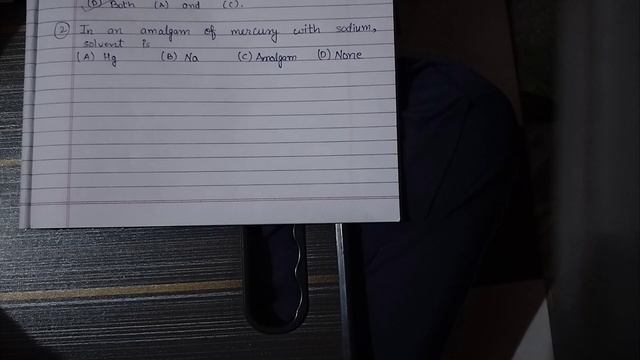 (D) Both (A) and (C).
② In an amalgam of mercury with sodium,
solvent is
(A) Hg (B) Na (C) Amalgam (D) None